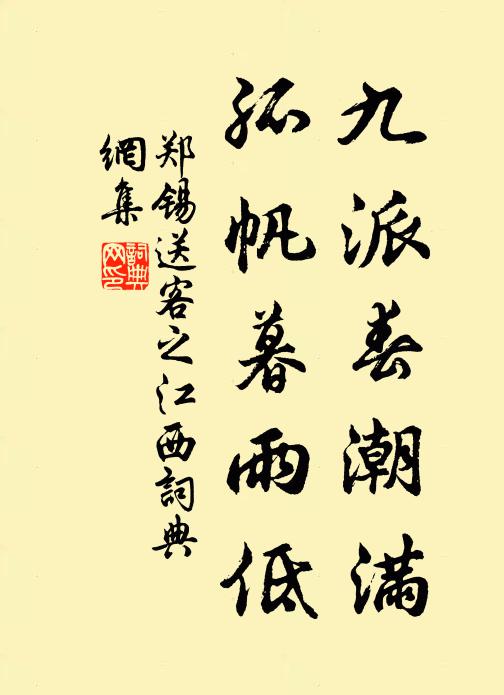 九派春潮满
孤帆暮雨低
郑锡送客之江西詞典
網集
詞典
网印